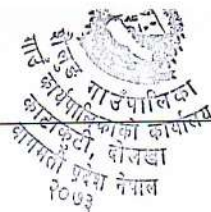 शैलुङ गाउँपालिका
गाउँ कार्यपालिकाको कार्यालय
काटाकुटी, दोलखा
बागमती प्रदेश नेपाल
२०७३